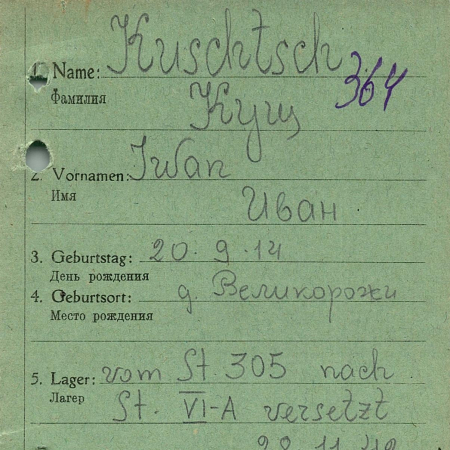 Kuschtsch
1. Name:
364
Фамилия
Кущ
2. Vornamen: Iwan
Имя
Иван
3. Geburtstag: 20.9.14
День рождения
4. Geburtsort: д. Великорожи
Место рождения
5. Lager: vom St. 305 nach
Лагерь
St. VI-A versetzt